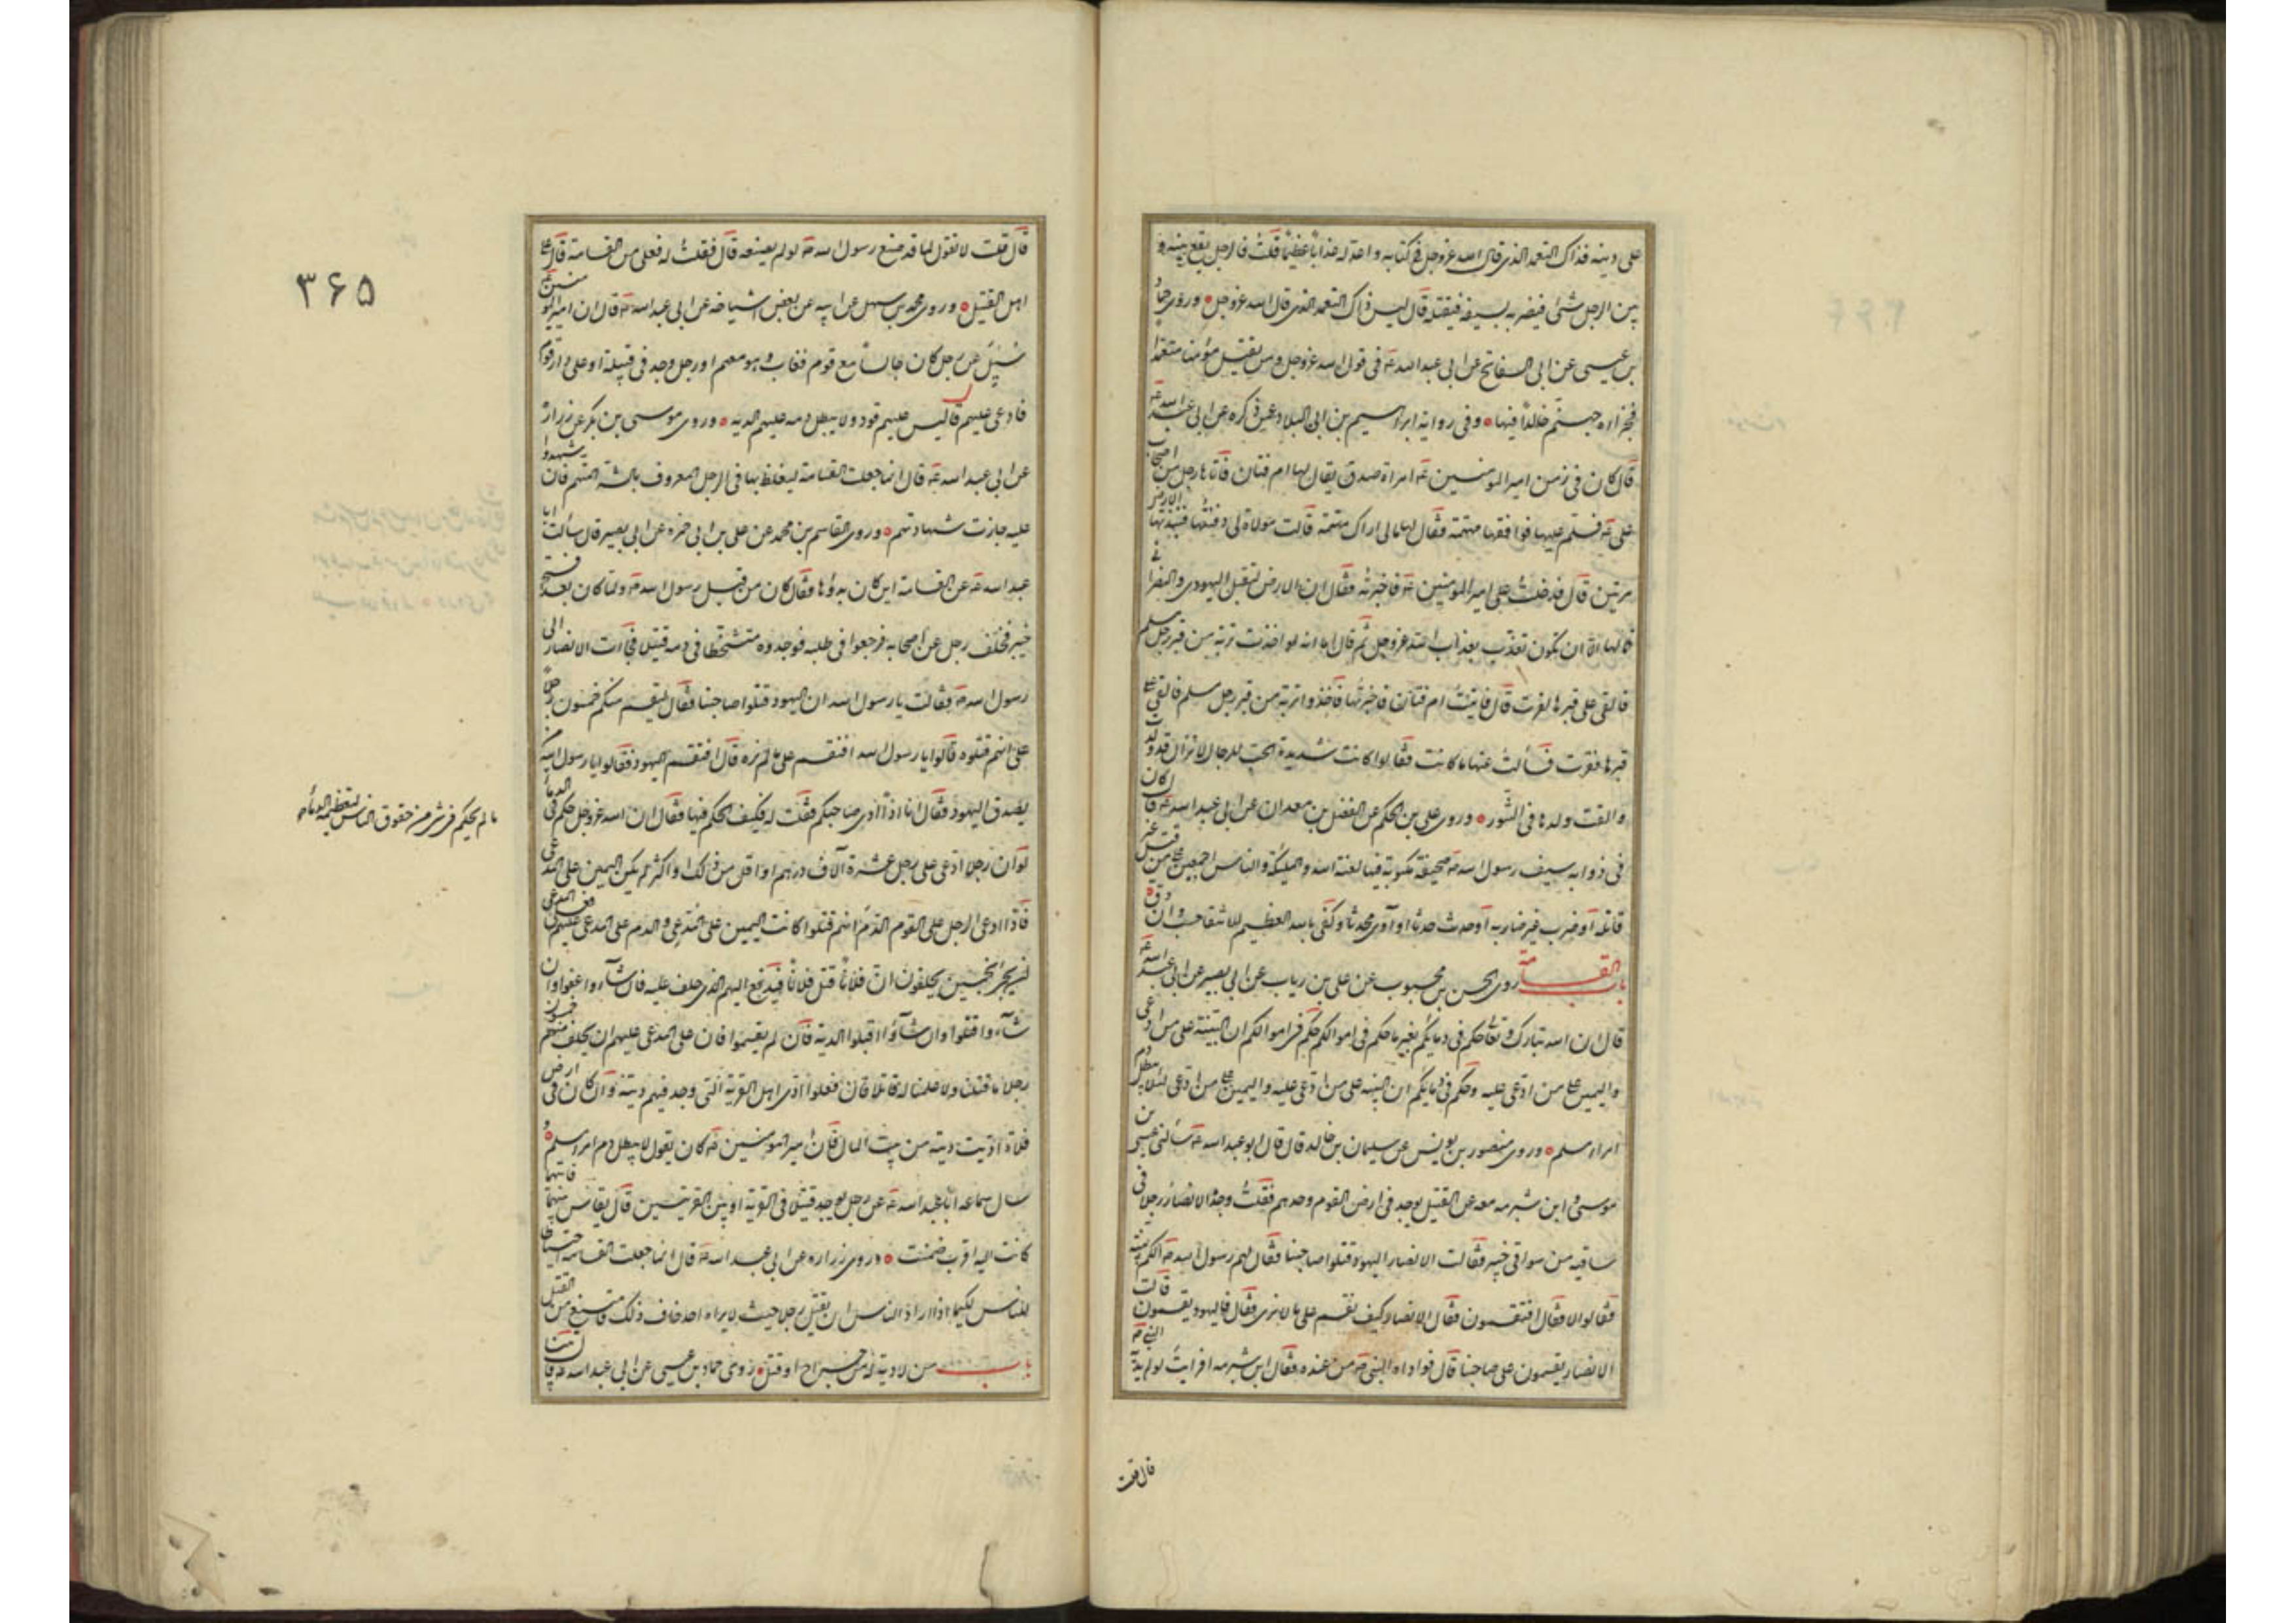 على دينه فذاك التعمد الذى قال الله عز وجل فى كتابه واعد له عذابا عظيما قلت فالرجل يقع بينه و
بين الرجل شئ فيضربه بسيفه فيقتله قال ليس ذاك التعمد الذى قال الله عز وجل وروى حماد
بن عيسى عن ابى السفاتج عن ابى عبد الله ع فى قول الله عز وجل ومن يقتل مؤمنا متعمدا
فجزاؤه جهنم خالدا فيها وفى رواية ابراهيم بن ابى البلاد عمن ذكره عن ابى عبد الله ع
قال كان فى زمن امير المومنين ع امراة صدق يقال لها ام فتان فاتاها رجل من اصحاب
على ع فسلم عليها فوافقها مهتمة فقال لها مالى اراك مهتمة قالت مولاة لى دفنتها فنبذتها الارض
مرتين قال فدخلت على امير المومنين ع فاخبرته فقال ان الارض لتقبل اليهودى والنصرانى
فما لها الا ان تكون تعذب بعذاب الله عز وجل ثم قال اما انه لو اخذت تربة من قبر رجل مسلم
فالقى على قبرها لقرت قال فاتيت ام فتان فاخبرتها فاخذوا تربة من قبر رجل مسلم فالقى على
قبرها فقرت فسالت عنها ما كانت فقالوا كانت شديدة الحب للرجال لا تزال قد ولدت
والقت ولدها فى التنور وروى على بن الحكم عن الفضل بن سعدان عن ابى عبد الله ع قال كان
فى ذوابة سيف رسول الله ص صحيفة مكتوبة فيها لعنة الله والملئكة والناس اجمعين على من قتل غير
قاتله او ضرب غير ضاربه او احدث حدثا او آوى محدثا وكفى بالله العظيم الانتفاء من حسب وان دق
باب القسامة روى الحسن بن محبوب عن على بن رياب عن ابى بصير عن ابى عبد الله ع
قال ان الله تبارك وتعا حكم فى دمائكم بغير ما حكم فى اموالكم حكم فى اموالكم ان البينة على من ادعى
واليمين على من ادعى عليه وحكم فى دمائكم ان البينة على من ادعى عليه واليمين على من ادعى لئلا يبطل دم
امرء مسلم وروى منصور بن يونس عن سليمان بن خالد قال قال ابو عبد الله ع سألنى عيسى بن
موسى وابن شبرمه معه عن القتيل يوجد فى ارض القوم وحدهم فقلت وجد الانصار رجلا فى
ساقية من سواقى خيبر فقالت الانصار اليهود قتلوا صاحبنا فقال لهم رسول الله ص الكم بينة
فقالوا لا فقال افتقسمون فقال الانصار كيف نقسم على ما لا نرى فقال فاليهود يقسمون قالت
الانصار يقسمون على صاحبنا قال فوداه النبى ص من عنده فقال ابن شبرمه افرايت لو لم يده النبى ص
قال قلت
٣۶۵
قال قلت لا نقول لما قد صنع رسول الله ص لو لم يصنعه قال فقلت له فعلى من القسامة قال على
اهل القتيل وروى محمد بن سهل عن ابيه عن بعض اشياخه عن ابى عبد الله ع قال ان امير المومنين ع
سئل عن رجل كان جالسا مع قوم فمات وهو معهم او رجل وجد فى قبيلة او على دار قوم
فادعى عليهم قال ليس عليهم قود ولا يبطل دمه عليهم الدية وروى موسى بن بكر عن زرارة
عن ابى عبد الله ع قال انما جعلت القسامة ليغلظ بها فى الرجل المعروف بالشر المتهم فان شهدوا
عليه جازت شهادتهم وروى القاسم بن محمد عن على بن ابى حمزه عن ابى بصير قال سألت ابا
عبد الله ع عن القسامة اين كان بدؤها فقال كان من قبل رسول الله ص ولما كان بعد فتح
خيبر تخلف رجل عن اصحابه فرجعوا فى طلبه فوجدوه متشحطا فى دمه قتيلا فجاءت الانصار الى
رسول الله ص فقالت يا رسول الله ان اليهود قتلوا صاحبنا فقال ليقسم منكم خمسون رجلا
على انهم قتلوه قالوا يا رسول الله افنقسم على ما لم نره قال افتقسم اليهود فقالوا يا رسول الله من
يصدق اليهود فقال انا اذا ادى صاحبكم فقلت له فكيف الحكم فيها فقال ان الله عز وجل حكم فى الدماء
ما لم يحكم فى شئ من حقوق الناس لتعظيمه الدماء
لو ان رجلا ادعى على رجل عشرة آلاف درهم او اقل من ذلك او اكثر لم يكن اليمين على المدعى
فاذا ادعى الرجل على القوم الدم انهم قتلوا كانت اليمين على المدعى
شآء واقتلوا وان شآؤا اقبلوا الدية فان لم يقسموا فان على المدعى عليهم ان يحلف منهم خمسون
رجلا ما قتلنا ولا علمنا له قاتلا فان فعلوا ادى اهل القرية التى وجد فيهم ديته وان كان فى ارض
فلاة اديت ديته من بيت المال فان امير المومنين ع كان يقول لا يبطل دم امرء مسلم و
سال سماعه ابا عبد الله ع عن رجل يوجد قتيلا فى القرية او بين القريتين قال يقاس بينهما فايتهما
كانت اليه اقرب ضمنت وروى زراره عن ابى عبد الله ع قال انما جعلت القسامه احتياطا
للناس لكيما اذا اراد الناس ان يقتل رجلا حيث لا يراه احد خاف ذلك فامتنع من القتل
باب من لا دية له من جراح او قتل روى حماد بن عيسى عن ابى عبد الله ع قال